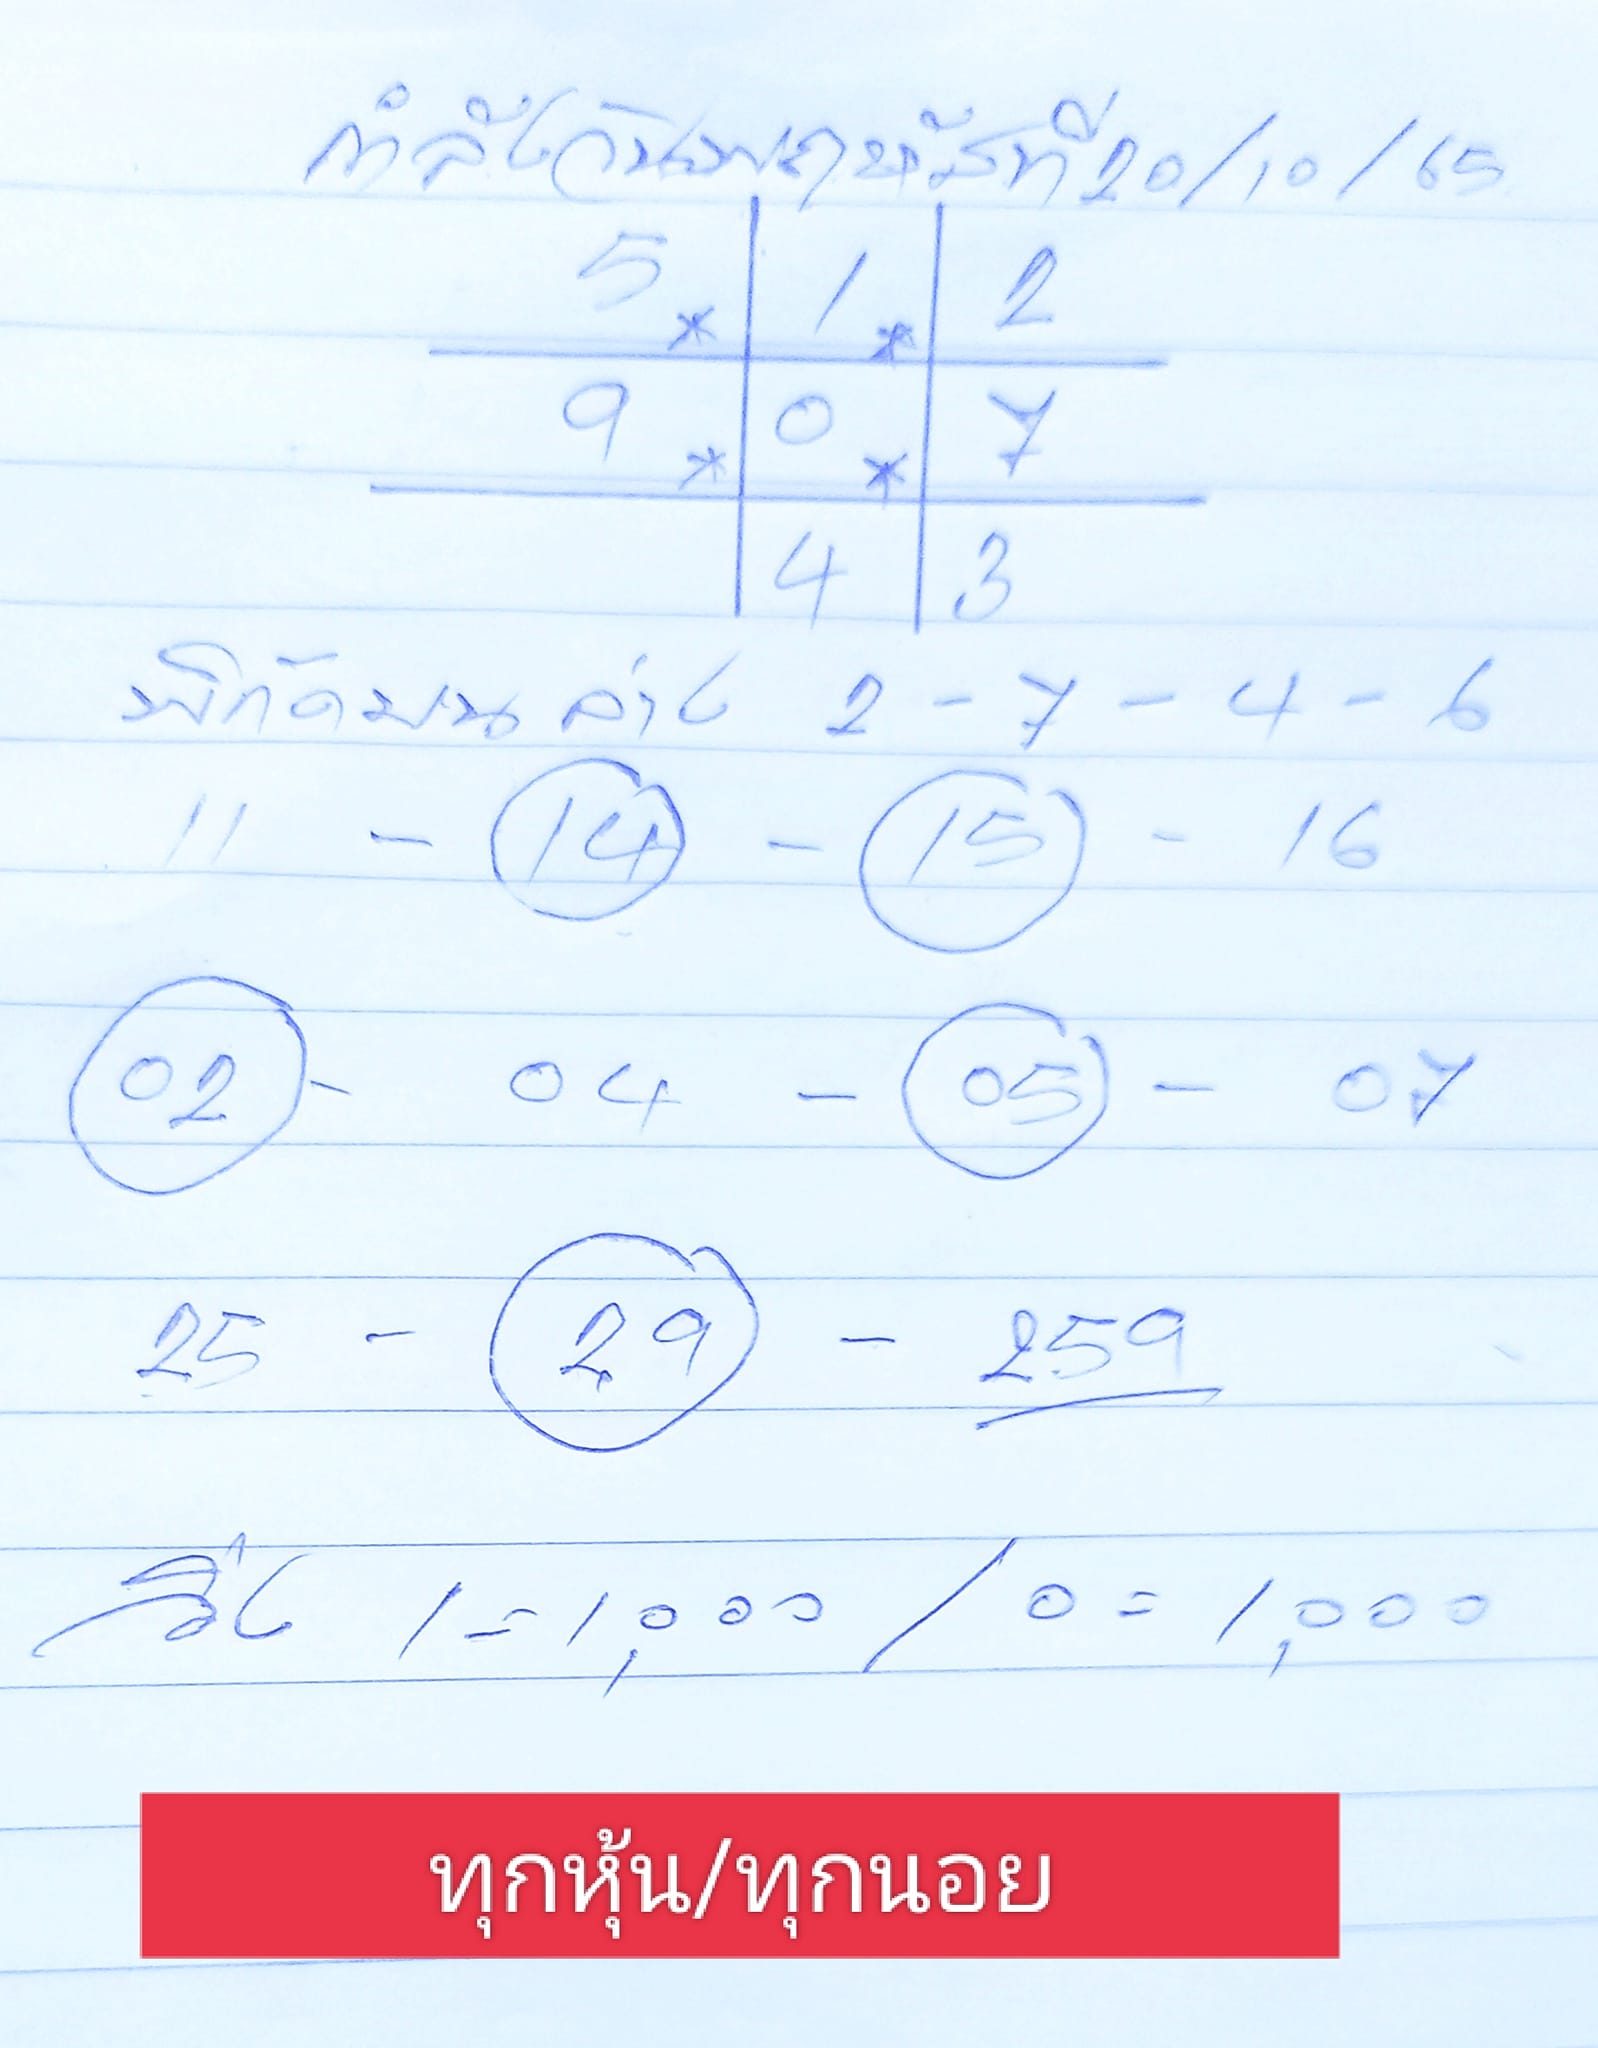 กำลังวันพฤหัสที่ 20/10/65
5 * 1 * 2
9 * 0 * 7
4 3
พิกัดบนล่าง 2 - 7 - 4 - 6
11 - 14 - 15 - 16
02 - 04 - 05 - 07
25 - 29 - 259
วิ่ง 1 = 1,000 / 0 = 1,000
ทุกหุ้น/ทุกนอย